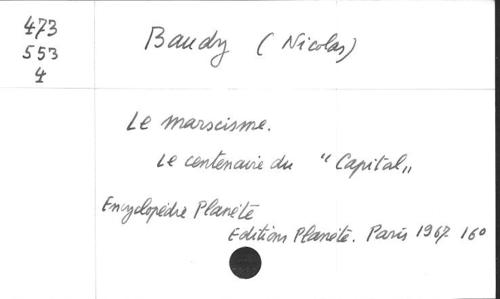 473
553
4
Baudy (Nicolas)
Le marxisme.
Le centenaire du "Capital„
Encyclopédie Planète
Editions Planète. Paris 1967 16°